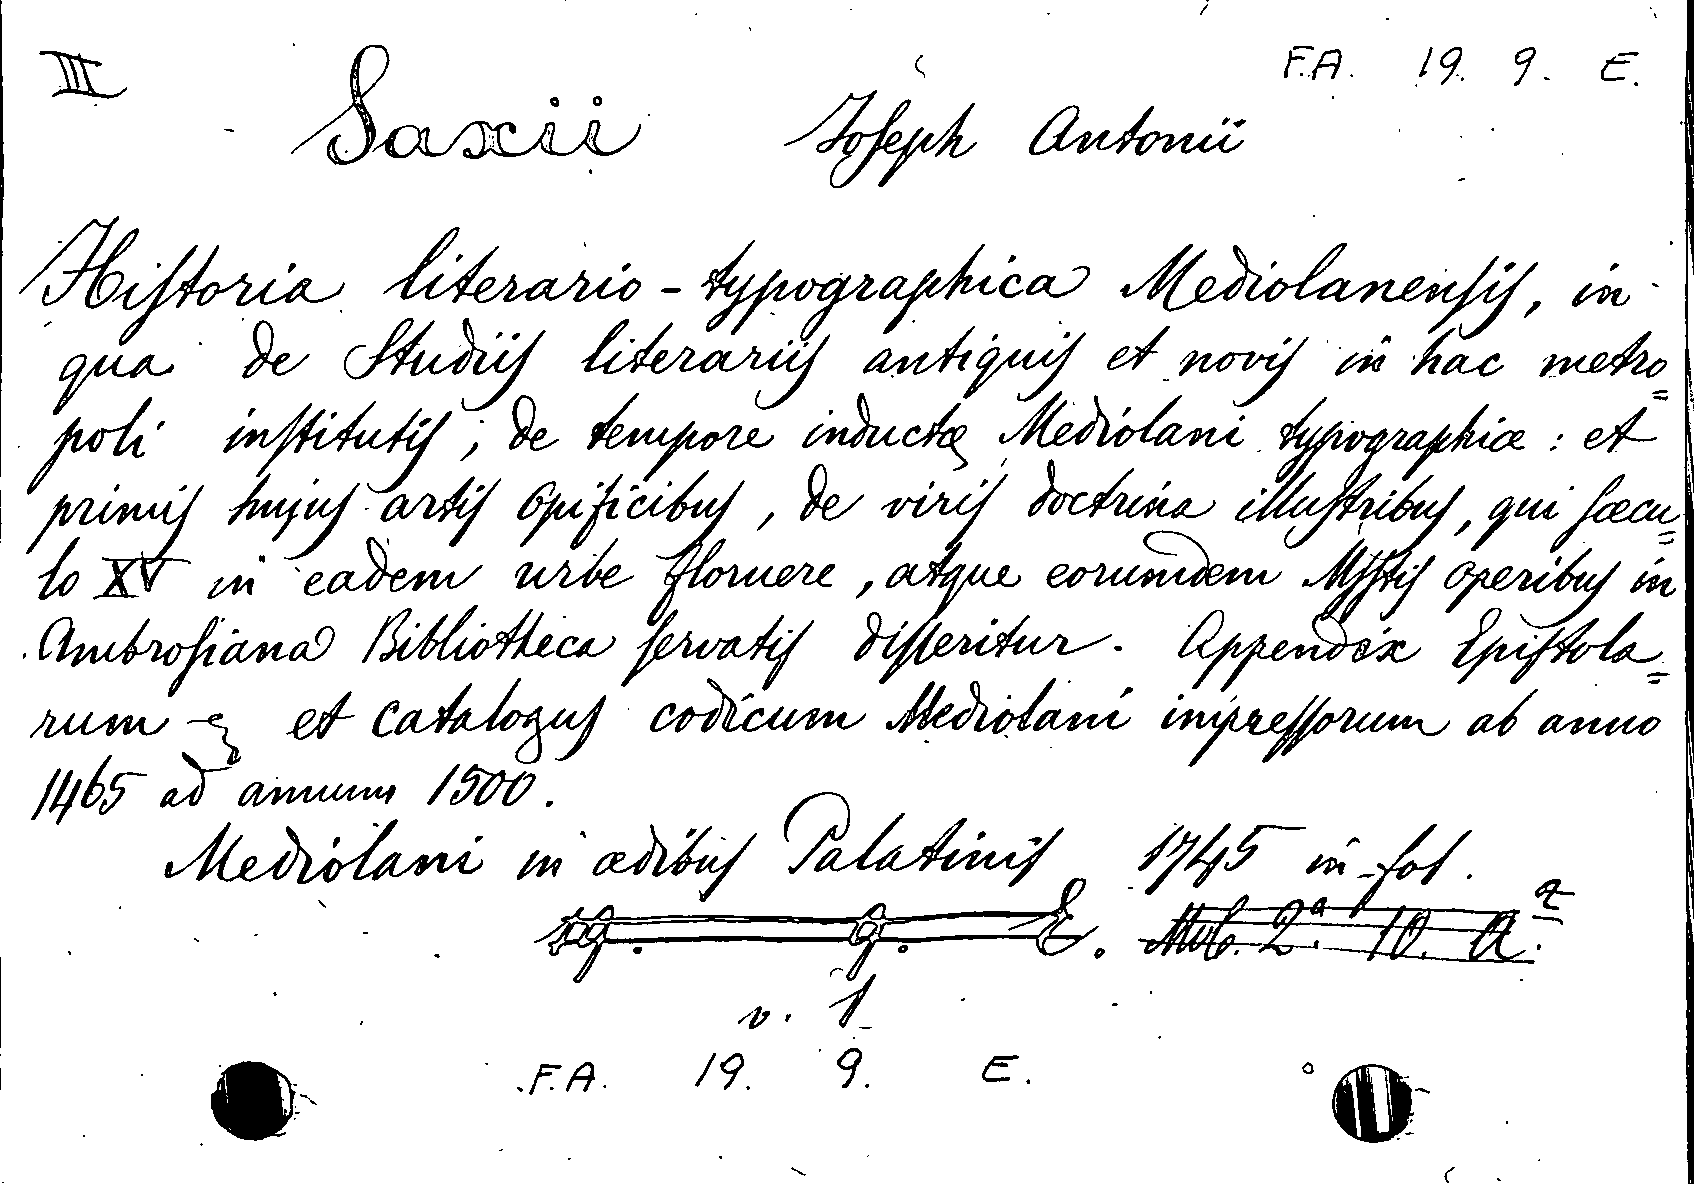 III
F.A. 19. 9. E.
Saxii Joseph Antonii
Historia literario-typographica Mediolanensis, in
qua de Studiis literariis antiquis et novis in hac metro=
poli institutis, de tempore inductæ Mediolani typographiæ: et
primis hujus artis opificibus, de viris doctrina illustribus, qui sæcu=
lo XV in eadem urbe floruere, atque eorumdem Msstis operibus in
Ambrosiana Bibliotheca servatis disseritur. Appendix Epistola=
rum et Catalogus codicum Mediolani impressorum ab anno
1465 ad annum 1500.
Mediolani in ædibus Palatinis 1745 in-fol.
19. 9. E. Mob. 2ª 10. a.
v. 1
F.A. 19. 9. E.